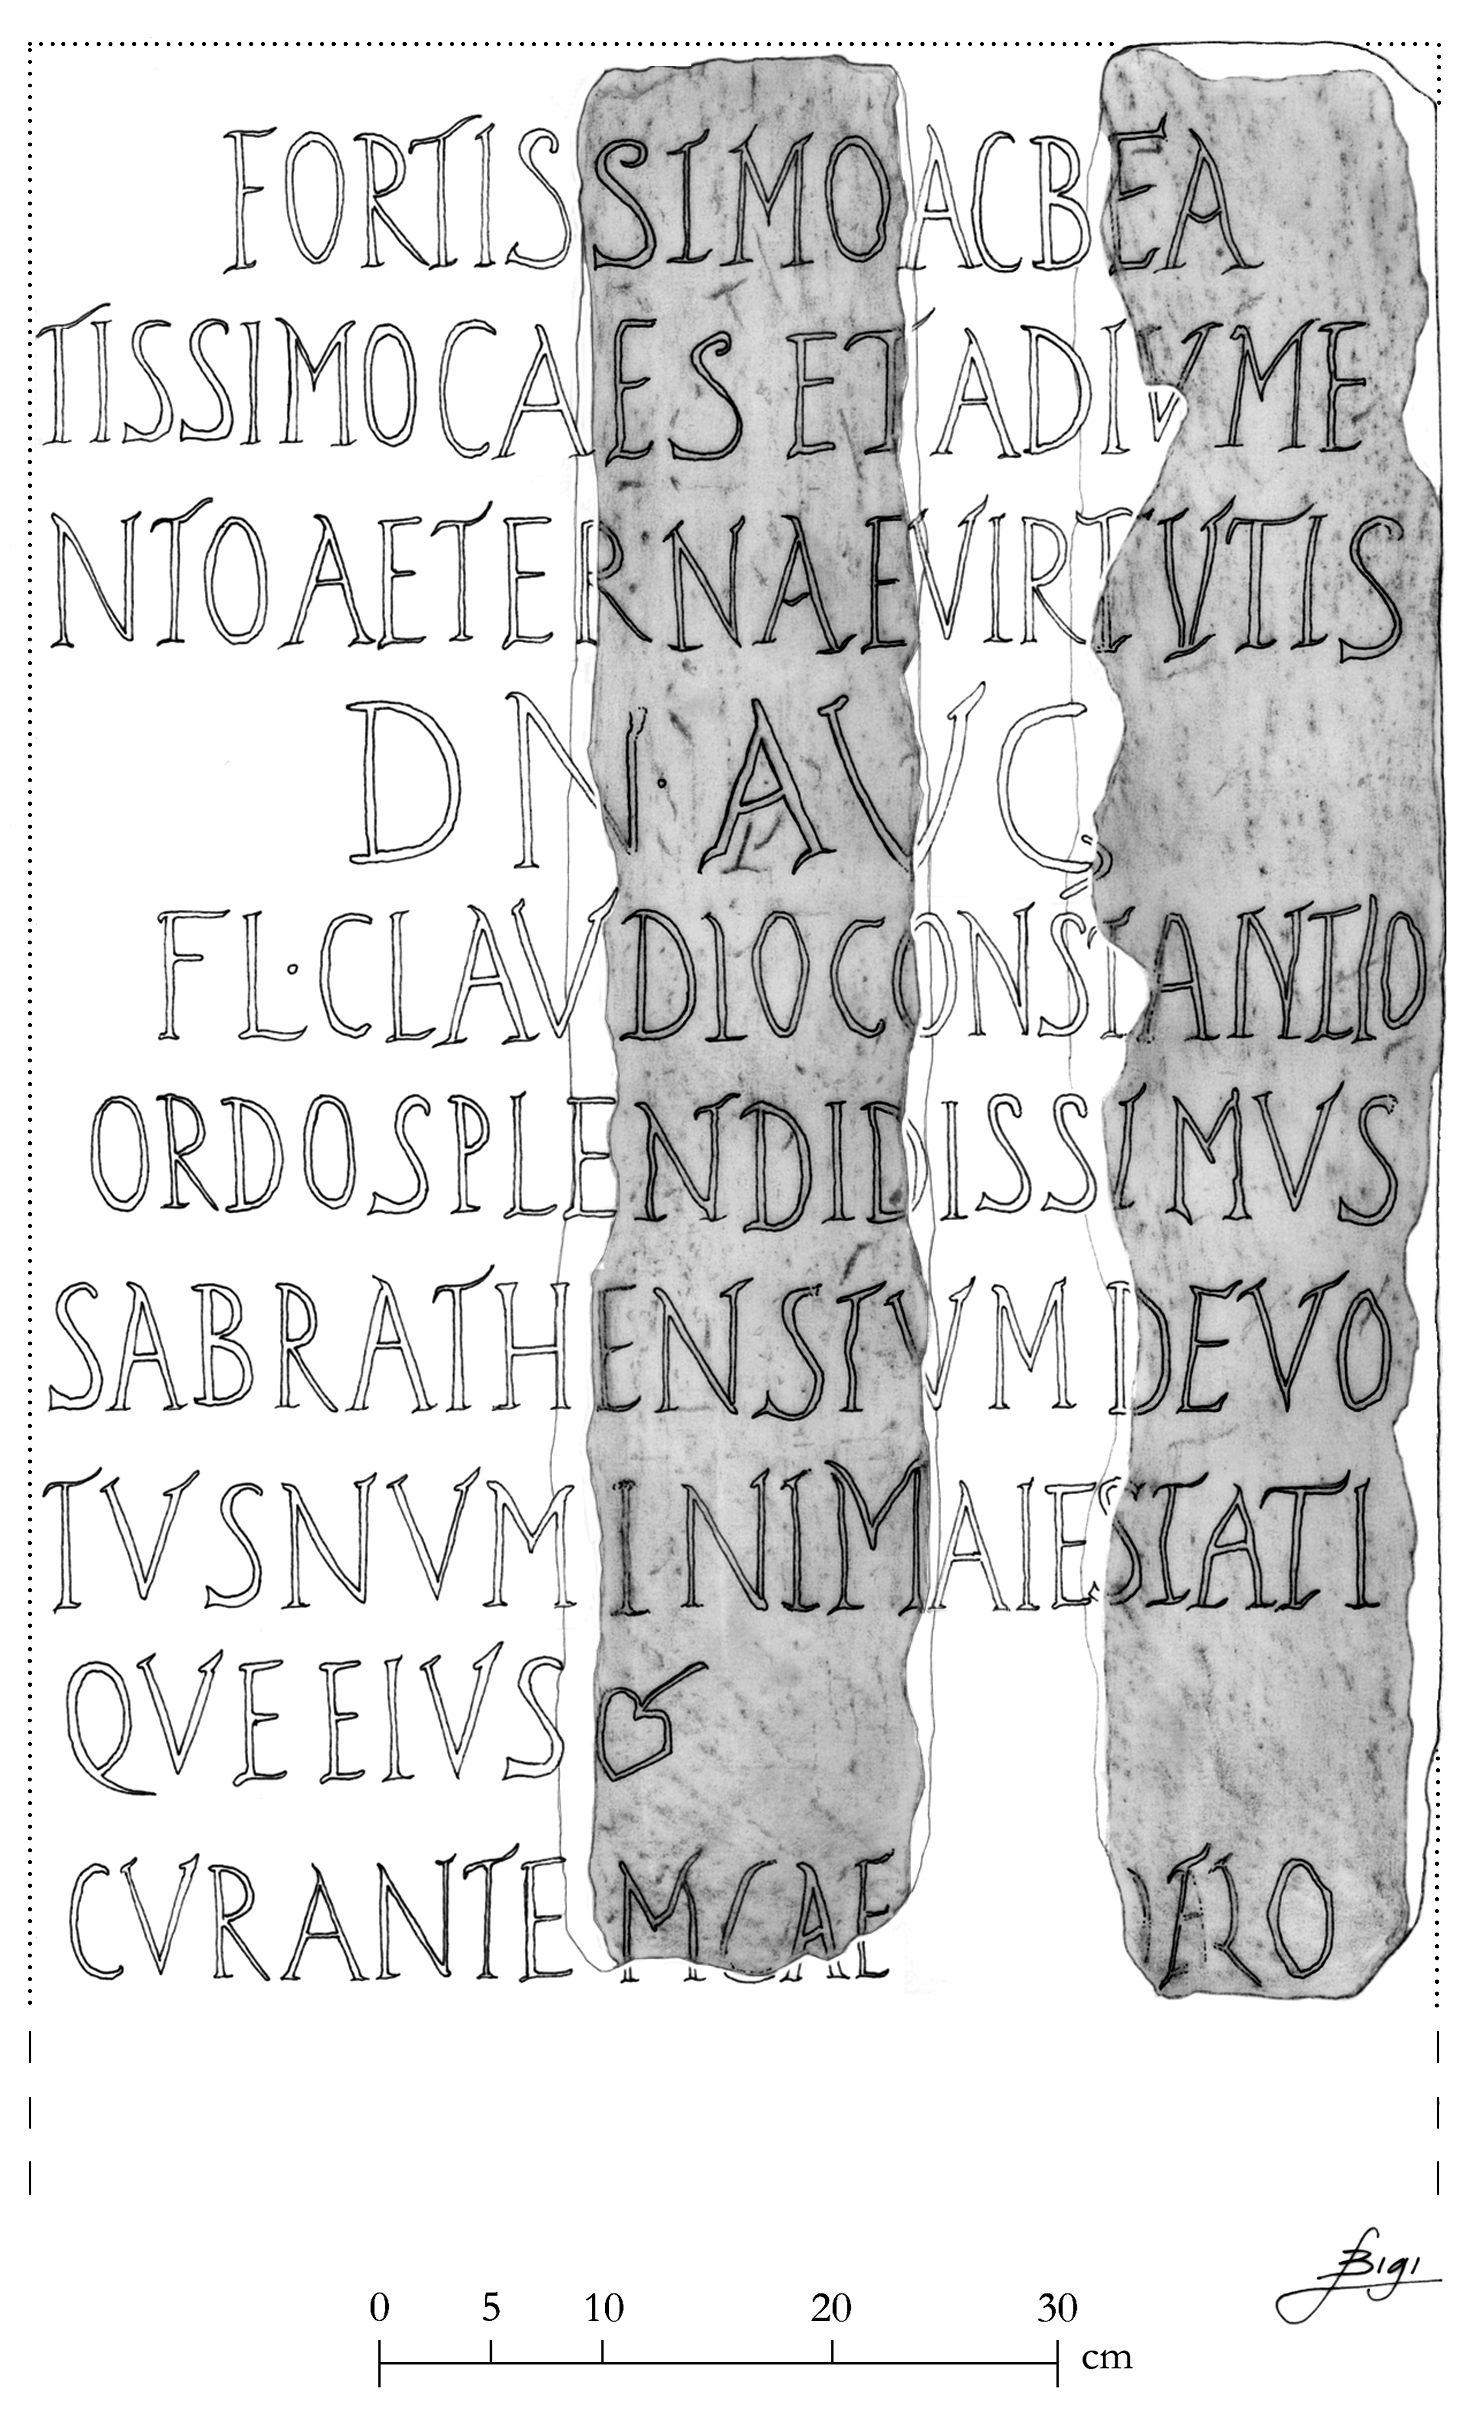 FORTISSIMO AC BEA
TISSIMO CAES ET ADIVME
NTO AETERNAE VIRTVTIS
D N · AVG
FL · CLAVDIO CONSTANTIO
ORDO SPLENDIDISSIMVS
SABRATHENSIVM DEVO
TVS NVMINI MAIESTATI
QVE EIVS
CVRANTE M CAE RO
0 5 10 20 30 cm
SBIGI